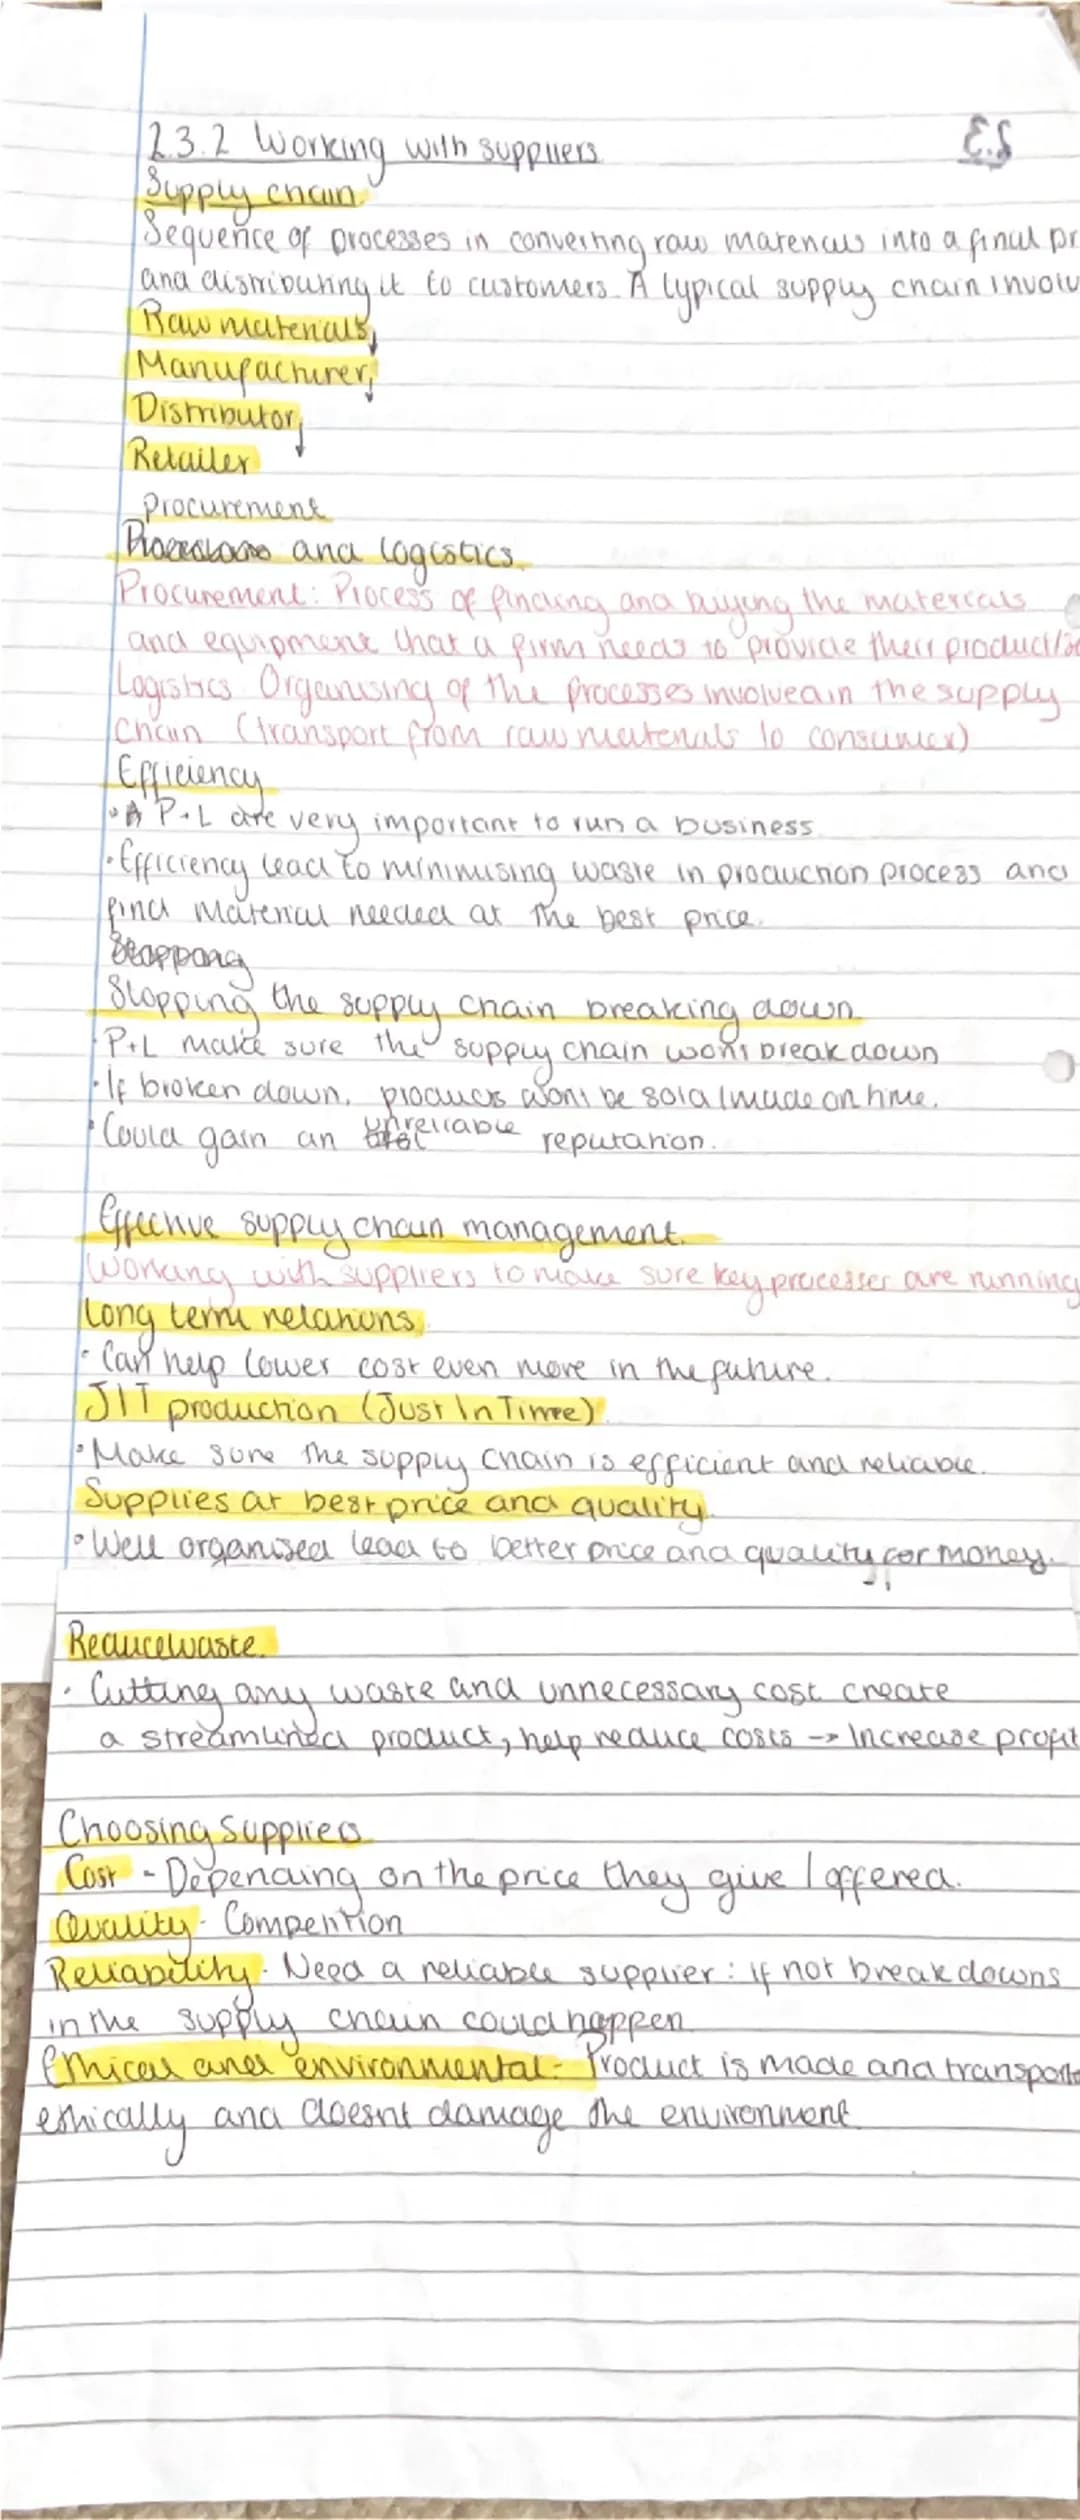 2.3.2 Working with suppliers
Supply chain
Sequence of processes in converting raw materials into a final pr
and distributing it to customers. A typical supply chain involv
Raw materials
Manufacturer
Distributor
Retailer
Procurement
and logistics.
Procurement: Process of finding and buying the materials
and equipment that a firm needs to provide their product/
Logistics: Organising of the processes involved in the supply
chain (transport from raw materials to consumer)
Efficiency
• P+L are very important to run a business
• Efficiency lead to minimising waste in production process and
find material needed at the best price.
Stopping the supply chain breaking down
• P+L make sure the supply chain wont break down
• If broken down, products wont be sold/made on time.
• Could gain an unreliable reputation.
Effective supply chain management.
Working with suppliers to make sure key processes are running
Long term relations
• Can help lower cost even more in the future.
JIT production (Just In Time)
• Make sure the supply chain is efficient and reliable.
Supplies at best price and quality.
• Well organised lead to better price and quality for money.
Reduce waste.
• Cutting any waste and unnecessary cost create
a streamlined product, help reduce costs -> Increase profit
Choosing Supplies
Cost - Depending on the price they give / offered.
Quality - Competition
Reliability - Need a reliable supplier: if not breakdowns
in the supply chain could happen
Ethical and environmental - Product is made and transport
ethically and doesnt damage the environment